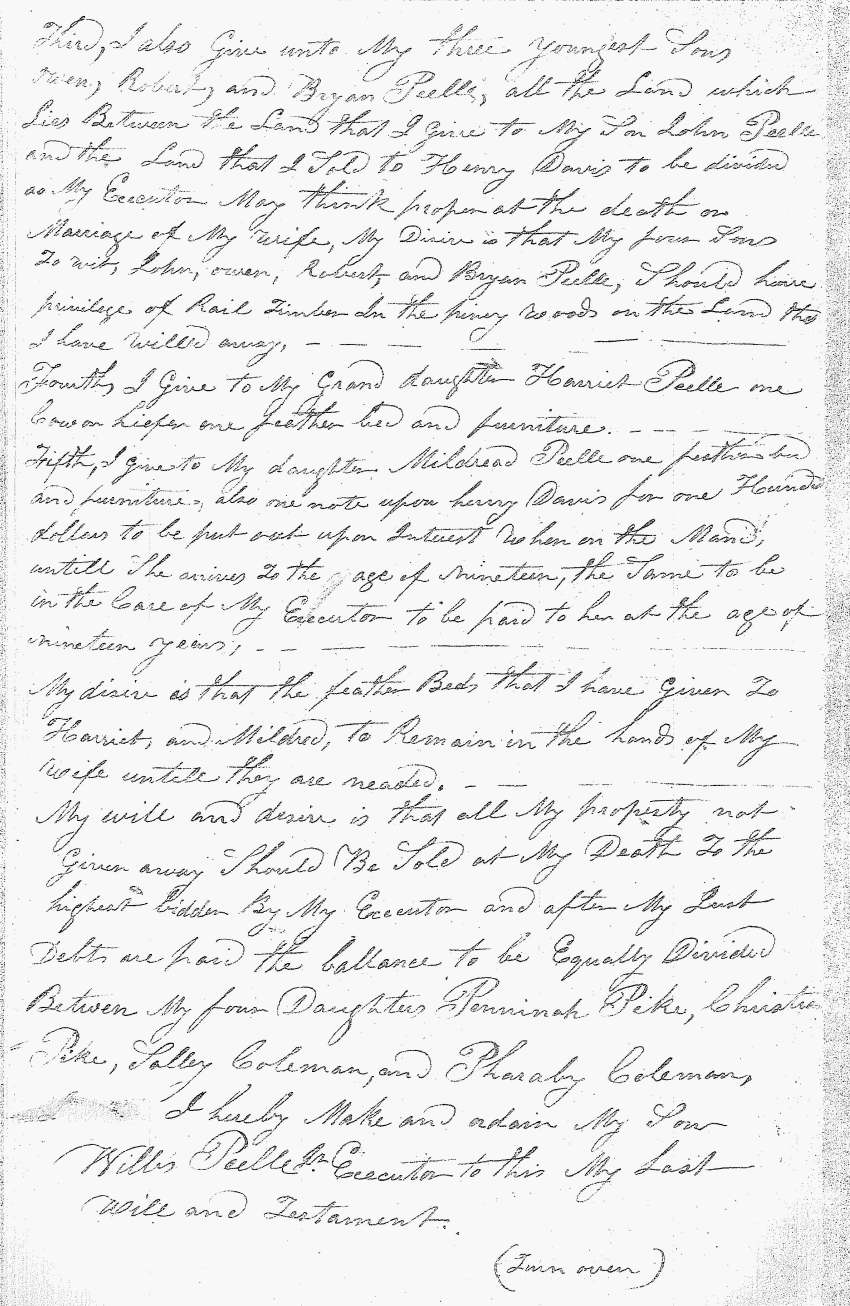 Third, I also Give unto My three youngest Sons
Owen, Robert, and Bryan Peelle, all the Land which
Lies Between the Land that I give to My Son John Peelle
and the Land that I Sold to Henry Davis to be divided
as My Executor May think proper at the death or
Marriage of My wife, My Disire is that My four Sons
To wit, John, owen, Robert, and Bryan Peelle, Should have
privilege of Rail Timber In the piney woods on the Land that
I have willed away, – – – – –
Fourth, I Give to My Grand daughter Harriet Peelle one
Cow or hiefer one feather bed and furniture. – – – –
Fifth, I give to My daughter Mildread Peelle one feather bed
and furniture, also one note upon henry Davis for one Hundred
dollars to be put out upon Interest when on the Mand,
untill She arrives To the age of Nineteen, the Same to be
in the Care of My Executor to be paid to her at the age of
Nineteen years, – – – – –
My disire is that the feather Beds that I have Given To
Harriet, and Mildred, To Remain in the hands of My
wife untill they are neaded. – – – –
My will and desire is that all My property not
Given away Should Be Sold at My Death To the
highest bidder By My Executor and after My Just
Debts are paid the ballance to be Equally Divided
Betwen My four Daughters Penninah Pike, Christian
Pike, Salley Coleman, and Pharaby Coleman,
I hereby Make and ordain My Son
Willis Peelle Jr. Executor to this My Last
Will and Testament.
(Turn over)